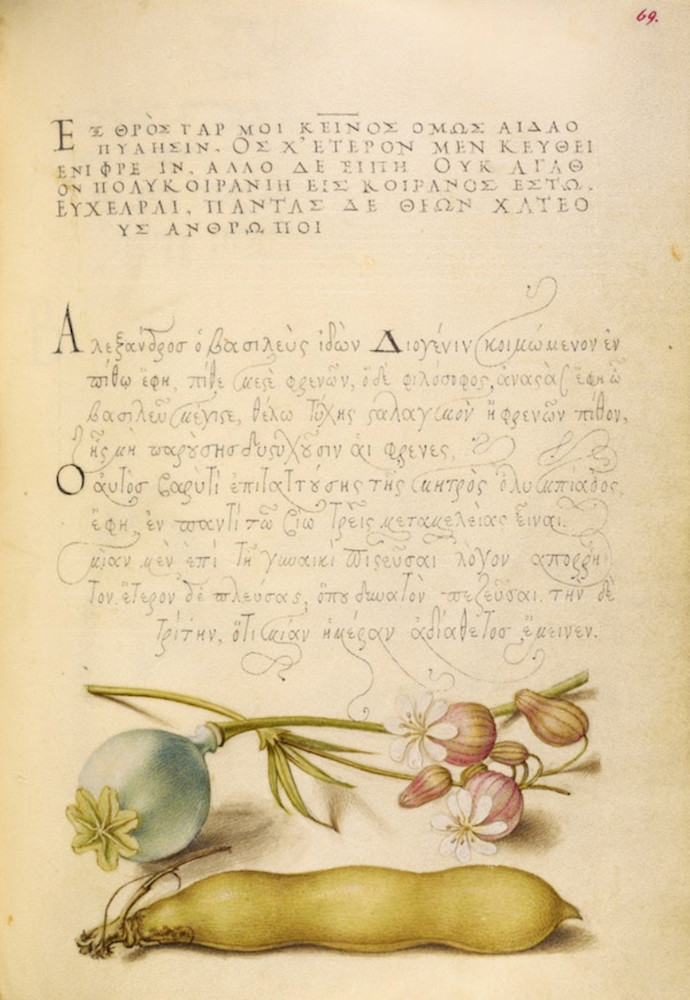 69.
ΕΣ ΘΡῸΣ ΓΑΡ ΜΟΙ ΚΕΙΝΟΣ ΟΜΩΣ ΑΙΔΑΟ
ΠΥΛΗΣΙΝ. ΟΣ Χ' ΕΤΕΡΟΝ ΜΕΝ ΚΕΥΘΕΙ
ΕΝΙ ΦΡΕ ΙΝ, ΑΛΛΟ ΔΕ ΕΙΠΗ ΟΥΚ ΑΓΑΘ
ΟΝ ΠΟΛΥΚΟΙΡΑΝΙΗ ΕΙΣ ΚΟΙΡΑΝΟΣ ΕΣΤΩ.
ΠΑΝΤΑΣ ΔΕ ΘΕΩΝ ΧΑΤΕΟ
ΥΣ ΑΝΘΡΩΠΟΙ
Αλεξανδροσ ὁ βασιλεὺς ἰδὼν Διογένιν κοιμώμενον ἐν
πίθω ἔφη, πίθε μεσὲ φρενῶν, ὁ δὲ φιλόσοφος, ἀναςὰς ἔφη ὦ
βασιλεῦ μέγιςε, θέλω τύχης ςαλαγμὸν ἢ φρενῶν πίθον,
ἧς μὴ παρούσησ δυςυχοῦσιν αἱ φρενες,
Ο αὐτὸς ἐπιταττούσης τῆς μητρὸς ὀλυμπιαδος,
ἔφη, ἐν παντὶ τῶ βίω τρεῖς μεταμελείας εἶναι.
μίαν μὲν ἐπὶ τῆ γυναικὶ πιςεῦσαι λόγον απορρη
τον. ἕτερον δὲ πλεύσας, ὅπου δυνατὸν πεζεῦσαι. τὴν δὲ
τρίτην, ὅτι μίαν ἡμέραν ἀδιαθετος ἔμεινεν.